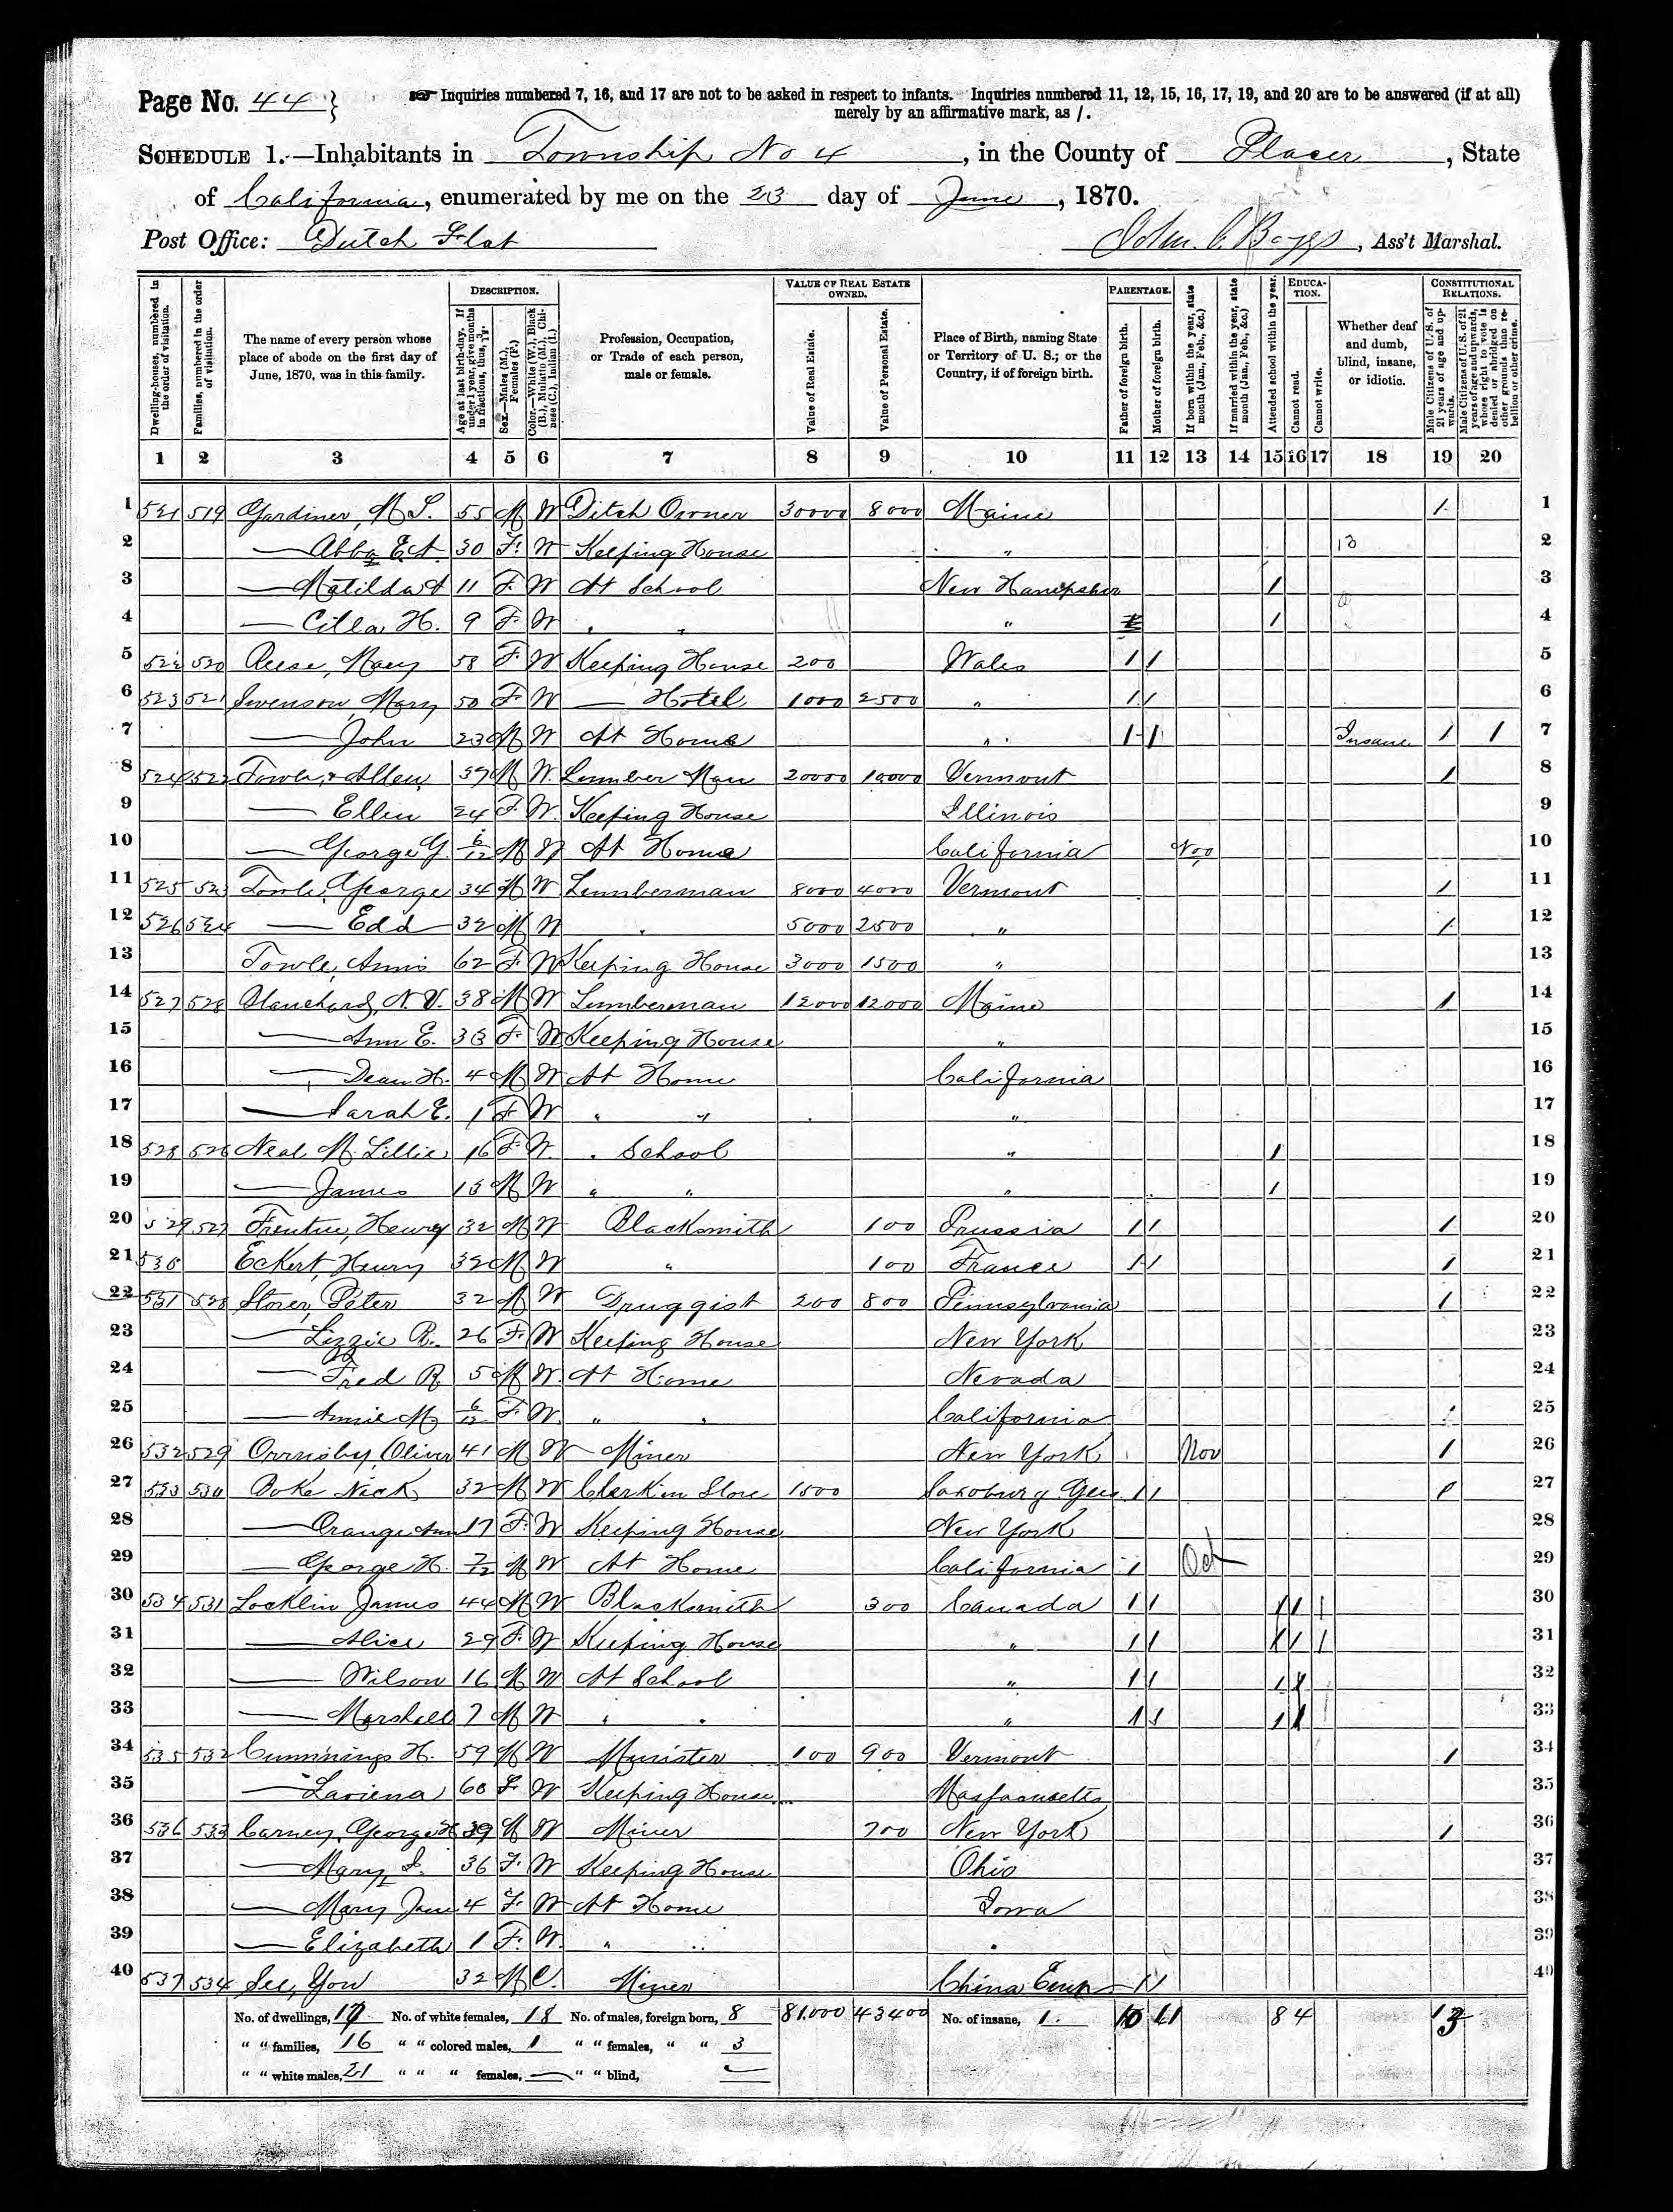 Page No. 44
Inquiries numbered 7, 16, and 17 are not to be asked in respect to infants. Inquiries numbered 11, 12, 15, 16, 17, 19, and 20 are to be answered (if at all)
merely by an affirmative mark, as /.
SCHEDULE 1.—Inhabitants in Township No 4, in the County of Placer, State
of California, enumerated by me on the 23 day of June, 1870.
Post Office: Dutch Flat John C. Boggs, Ass't Marshal.
Dwelling-houses, numbered in the order of visitation.
Families, numbered in the order of visitation.
The name of every person whose place of abode on the first day of June, 1870, was in this family.
DESCRIPTION.
Age at last birth-day. If under 1 year, give months in fractions, thus, 3/12.
Sex.—Males (M.), Females (F.)
Color.—White (W.), Black (B.), Mulatto (M.), Chinese (C.), Indian (I.)
Profession, Occupation, or Trade of each person, male or female.
VALUE OF REAL ESTATE OWNED.
Value of Real Estate.
Value of Personal Estate.
Place of Birth, naming State or Territory of U. S.; or the Country, if of foreign birth.
PARENTAGE.
Father of foreign birth.
Mother of foreign birth.
If born within the year, state month (Jan., Feb., &c.)
If married within the year, state month (Jan., Feb., &c.)
Attended school within the year.
EDUCATION.
Cannot read.
Cannot write.
Whether deaf and dumb, blind, insane, or idiotic.
CONSTITUTIONAL RELATIONS.
Male Citizens of U.S. of 21 years of age and upwards.
Male Citizens of U.S. of 21 years of age and upwards, whose right to vote is denied or abridged on other grounds than rebellion or other crime.
1 2 3 4 5 6 7 8 9 10 11 12 13 14 15 16 17 18 19 20
1 521 519 Gardiner, M S. 55 M W Ditch Owner 30000 8000 Maine / 1
2 — Abba E A 30 F W Keeping House " 13 2
3 — Matilda A 11 F W At School New Hampshire / 3
4 — Cilla H. 9 F W " " " / 4
5 522 520 Reese, Mary 58 F W Keeping House 200 Wales / / 5
6 523 521 Swenson, Mary 50 F W — Hotel 1000 2500 " / / 6
7 — John 23 M W At Home " / / Insane / / 7
8 524 522 Towle, Allen 37 M W Lumber Man 20000 10000 Vermont / 8
9 — Ellen 24 F W Keeping House Illinois 9
10 — George G. 6/12 M W At Home California Nov 10
11 525 523 Towle, George 34 M W Lumberman 8000 4000 Vermont / 11
12 526 524 — Edd 32 M W " 5000 2500 " / 12
13 Towle, Annis 62 F W Keeping House 3000 1500 " 13
14 527 525 Blanchard, N. V. 38 M W Lumberman 12000 12000 Maine / 14
15 — Ann E. 33 F W Keeping House " 15
16 — Dean H. 4 M W At Home California 16
17 — Sarah E. 1 F W " " " 17
18 528 526 Neal M. Lillie 16 F W " School " / 18
19 — James 13 M W " " " / 19
20 529 527 Henry 32 M W Blacksmith 100 Prussia / / / 20
21 530 Eckert, Henry 32 M W " 100 France / / / 21
22 531 528 Storer, Peter 32 M W Druggist 200 800 Pennsylvania / 22
23 — Lizzie R. 26 F W Keeping House New York 23
24 — Fred R 5 M W At Home Nevada 24
25 — Annie M 6/12 F W " " California 25
26 532 529 Ormsby, Oliver 41 M W Miner New York Nov / 26
27 533 530 Nick 32 M W Clerk in Store 1500 / / / 27
28 — Orange Ann 17 F W Keeping House New York 28
29 — George H. 7/12 M W At Home California / Oct 29
30 534 531 Locklin James 44 M W Blacksmith 300 Canada / / / / / 30
31 — Alice 29 F W Keeping House " / / / / / 31
32 — Wilson 16 M W At School " / / / / 32
33 — Marshall 7 M W " " " / / / / 33
34 535 532 Cummings H. 59 M W Minister 100 900 Vermont / 34
35 — Laviena 60 F W Keeping House Massachusetts 35
36 536 533 Carney, George H 39 M W Miner 700 New York / 36
37 — Mary J. 36 F W Keeping House Ohio 37
38 — Mary Jane 4 F W At Home Iowa 38
39 — Elizabeth 1 F W " " " 39
40 537 534 See, You 32 M C. Miner China Emp / / 40
No. of dwellings, 17 No. of white females, 18 No. of males, foreign born, 8 81.000 43400 No. of insane, 1. 10 11 8 4 13
" " families, 16 " " colored males, 1 " " females, " " 3
" " white males, 21 " " " females, — " " blind, —